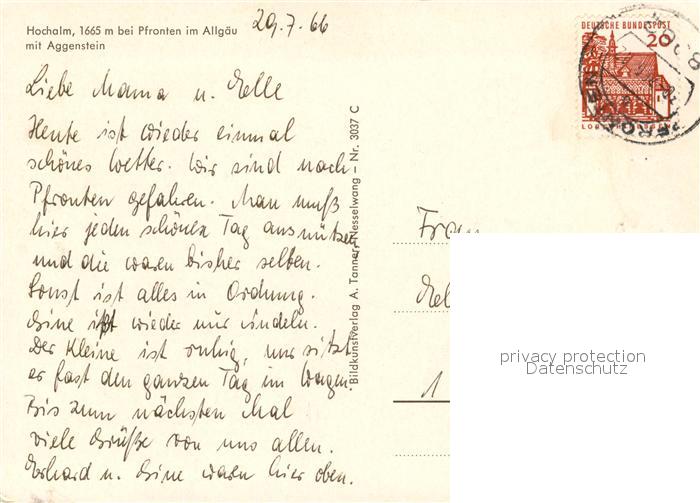 Hochalm, 1665 m bei Pfronten im Allgäu
mit Aggenstein
29.7.66
Liebe Mama u. Elle
Heute ist wieder einmal
schönes Wetter. Wir sind nach
Pfronten gefahren. Man muß
hier jeden schönen Tag ausnützen
und die waren bisher selten.
Sonst ist alles in Ordnung.
ist wieder nur
Der Kleine ist ruhig, nur sitzt
er fast den ganzen Tag im Wagen.
Bis zum nächsten Mal
viele Grüße von uns allen.
Erhard u. waren hier oben.
Bildkunstverlag A. Tanner, Nesselwang – Nr. 3037 C
DEUTSCHE BUNDESPOST
20
Frau
1
privacy protection
Datenschutz